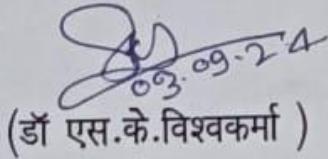 03.09.24
(डॉ एस.के.विश्वकर्मा )